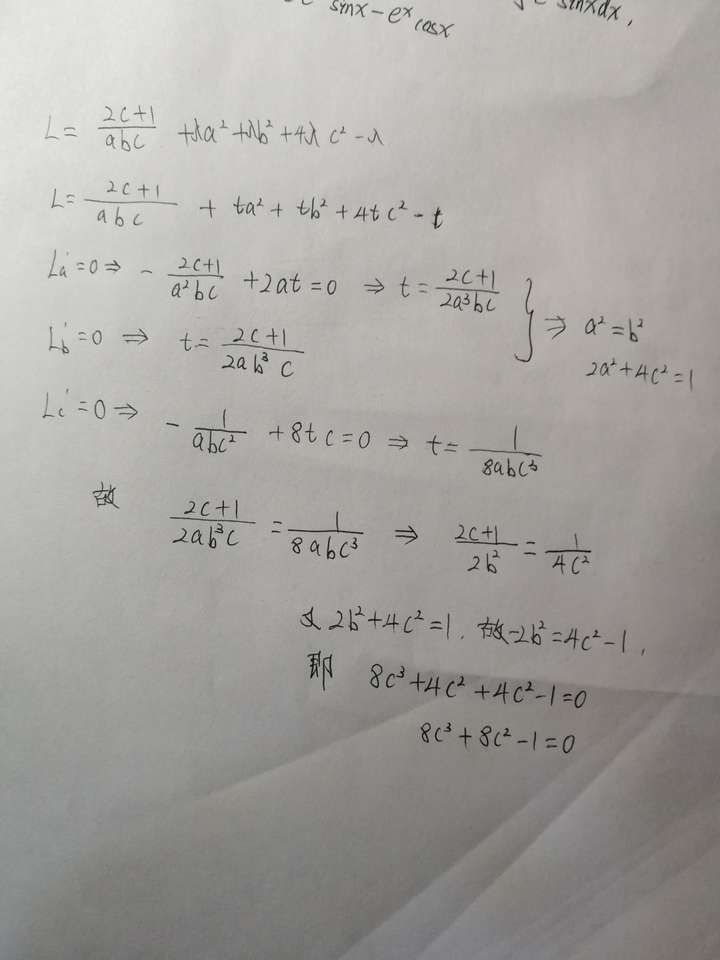 sinx - e^x cosx sinxdx,
L = \frac{2c+1}{abc} + λa² + λb² + 4λc² - λ
L = \frac{2c+1}{abc} + ta² + tb² + 4tc² - t
La' = 0 ⇒ - \frac{2c+1}{a²bc} + 2at = 0 ⇒ t = \frac{2c+1}{2a³bc}
Lb' = 0 ⇒ t = \frac{2c+1}{2ab³c} } ⇒ a² = b²
2a² + 4c² = 1
Lc' = 0 ⇒ - \frac{1}{abc²} + 8tc = 0 ⇒ t = \frac{1}{8abc³}
故 \frac{2c+1}{2ab³c} = \frac{1}{8abc³} ⇒ \frac{2c+1}{2b²} = \frac{1}{4c²}
又 2b² + 4c² = 1. 故 -2b² = 4c² - 1,
即 8c³ + 4c² + 4c² - 1 = 0
8c³ + 8c² - 1 = 0